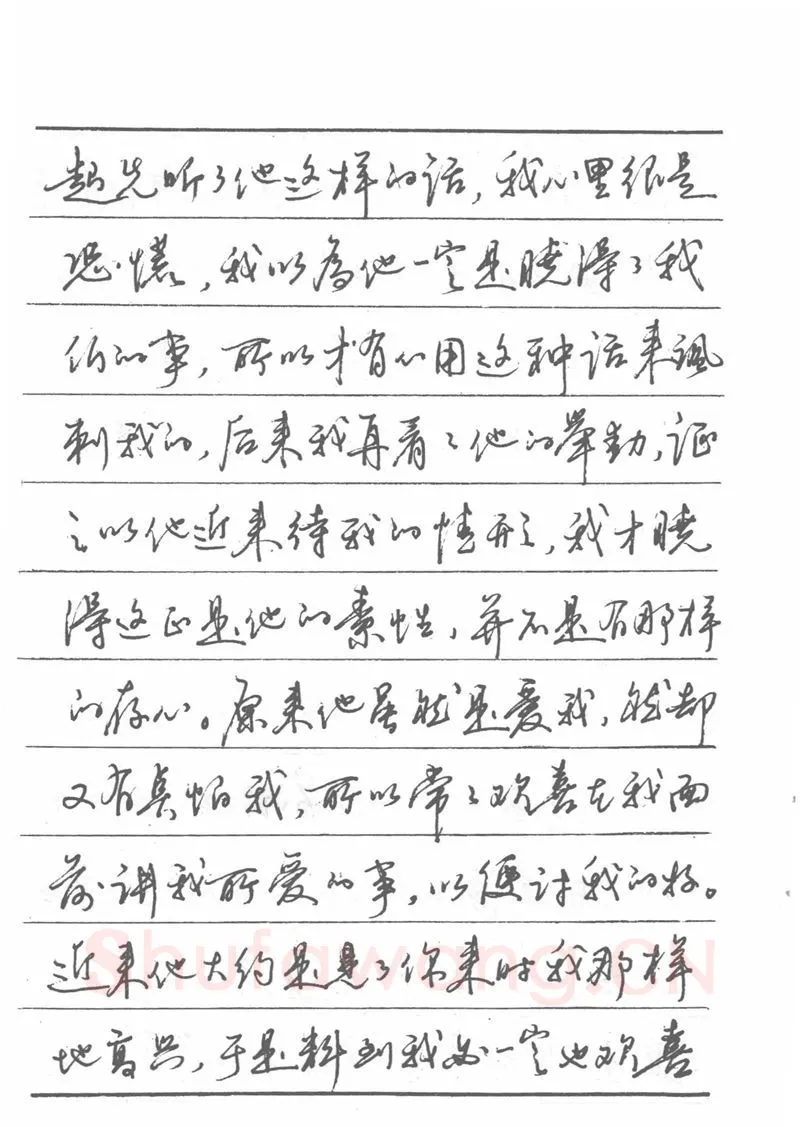 起先听了他这样的话，我心里很是
恐慌，我以为他一定是晓得了我
们的事，所以才有心用这种话来讽
刺我的，后来我再看了他的举动，证
之以他近来待我的情形，我才晓
得这正是他的素性，并不是有那样
的存心。原来他虽然是爱我，然却
又有点怕我，所以常常欢喜在我面
前讲我所爱的事，以便讨我的好。
近来他大约是见了你来时我那样
地高兴，于是料到我必一定也欢喜
Shufawang.CN